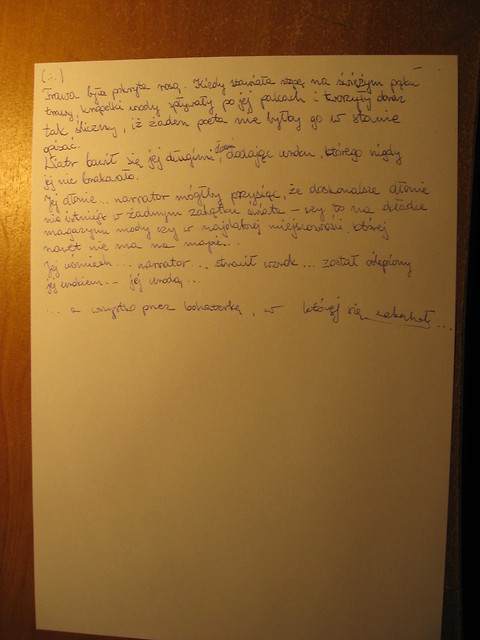 (...)
Trawa była pokryta rosą. Kiedy stawiała stopę na świeżym pąku
trawy, kropelki wody spływały po jej palcach i tworzyły obraz
tak śliczny, iż żaden poeta nie byłby go w stanie
opisać.
Wiatr bawił się jej długimi, dodając uroku, którego nigdy
jej nie brakowało.
Jej dłonie... narrator mógłby przysiąc, że doskonalsze dłonie
nie istnieją w żadnym zakątku świata - czy to na okładce
magazynu mody czy w najdalszej miejscowości, której
nawet nie ma na mapie...
Jej uśmiech... narrator... stracił wzrok... został oślepiony
jej urokiem... jej urodą...
... a wszystko przez bohaterkę, w której się zakochał...